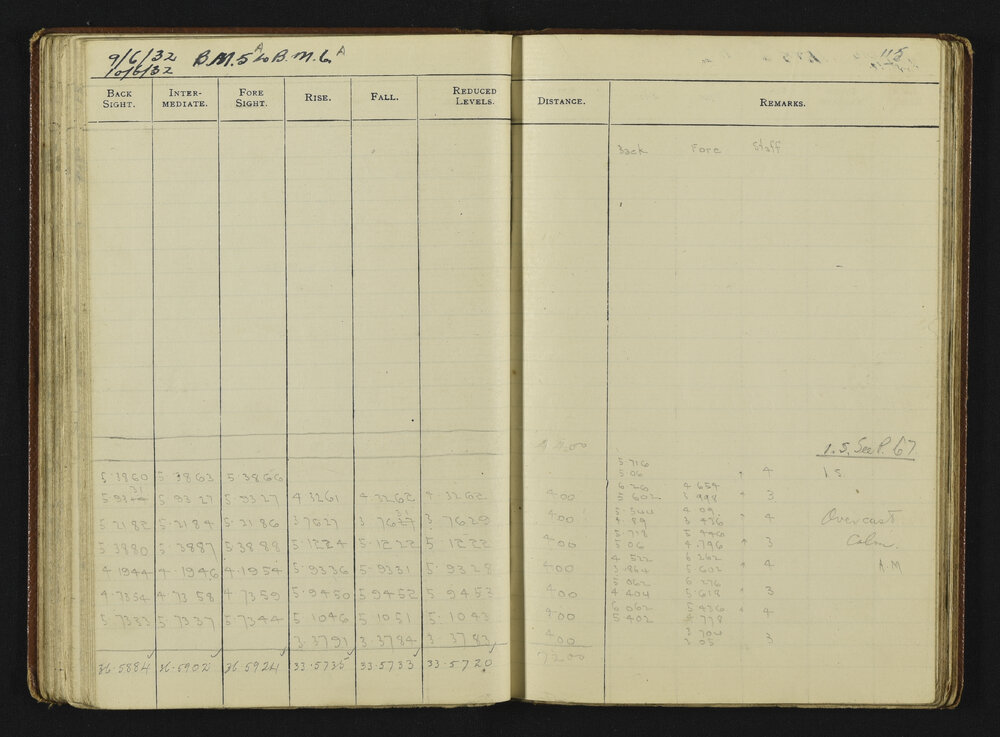 9/6/32 B.M.5ᴬ to B.M.6ᴬ
10/6/32
115
BACK SIGHT. INTER-MEDIATE. FORE SIGHT. RISE. FALL. REDUCED LEVELS. DISTANCE. REMARKS.
Back Fore Staff
1.S. See P. 67
5.716
5.3860 5.3863 5.3866 5.06 4 1 S.
6.26 4.654
5.9327 5.9327 4.3261 4.3262 4.3262 400 5.602 3.998 3
5.544 4.09
5.2182 5.2184 5.2186 3.7627 3.7629 400 4.89 3.436 4 Overcast
5.718 5.446
5.3880 5.3887 5.3888 5.1224 5.1222 5.1222 400 5.06 4.796 3 Calm
4.522 6.262
4.1944 4.1946 4.1954 5.9336 5.9331 5.9328 400 3.862 5.602 4 A.M
5.062 6.276
4.7354 4.7358 4.7359 5.9450 5.9452 5.9453 400 4.404 5.618 3
6.062 5.436
5.7333 5.7337 5.7344 5.1046 5.1051 5.1043 400 5.402 4.778 4
3.704
3.3791 3.3784 3.3783 400 3.05 3
36.5884 36.5902 36.5924 33.5735 33.5733 33.5720